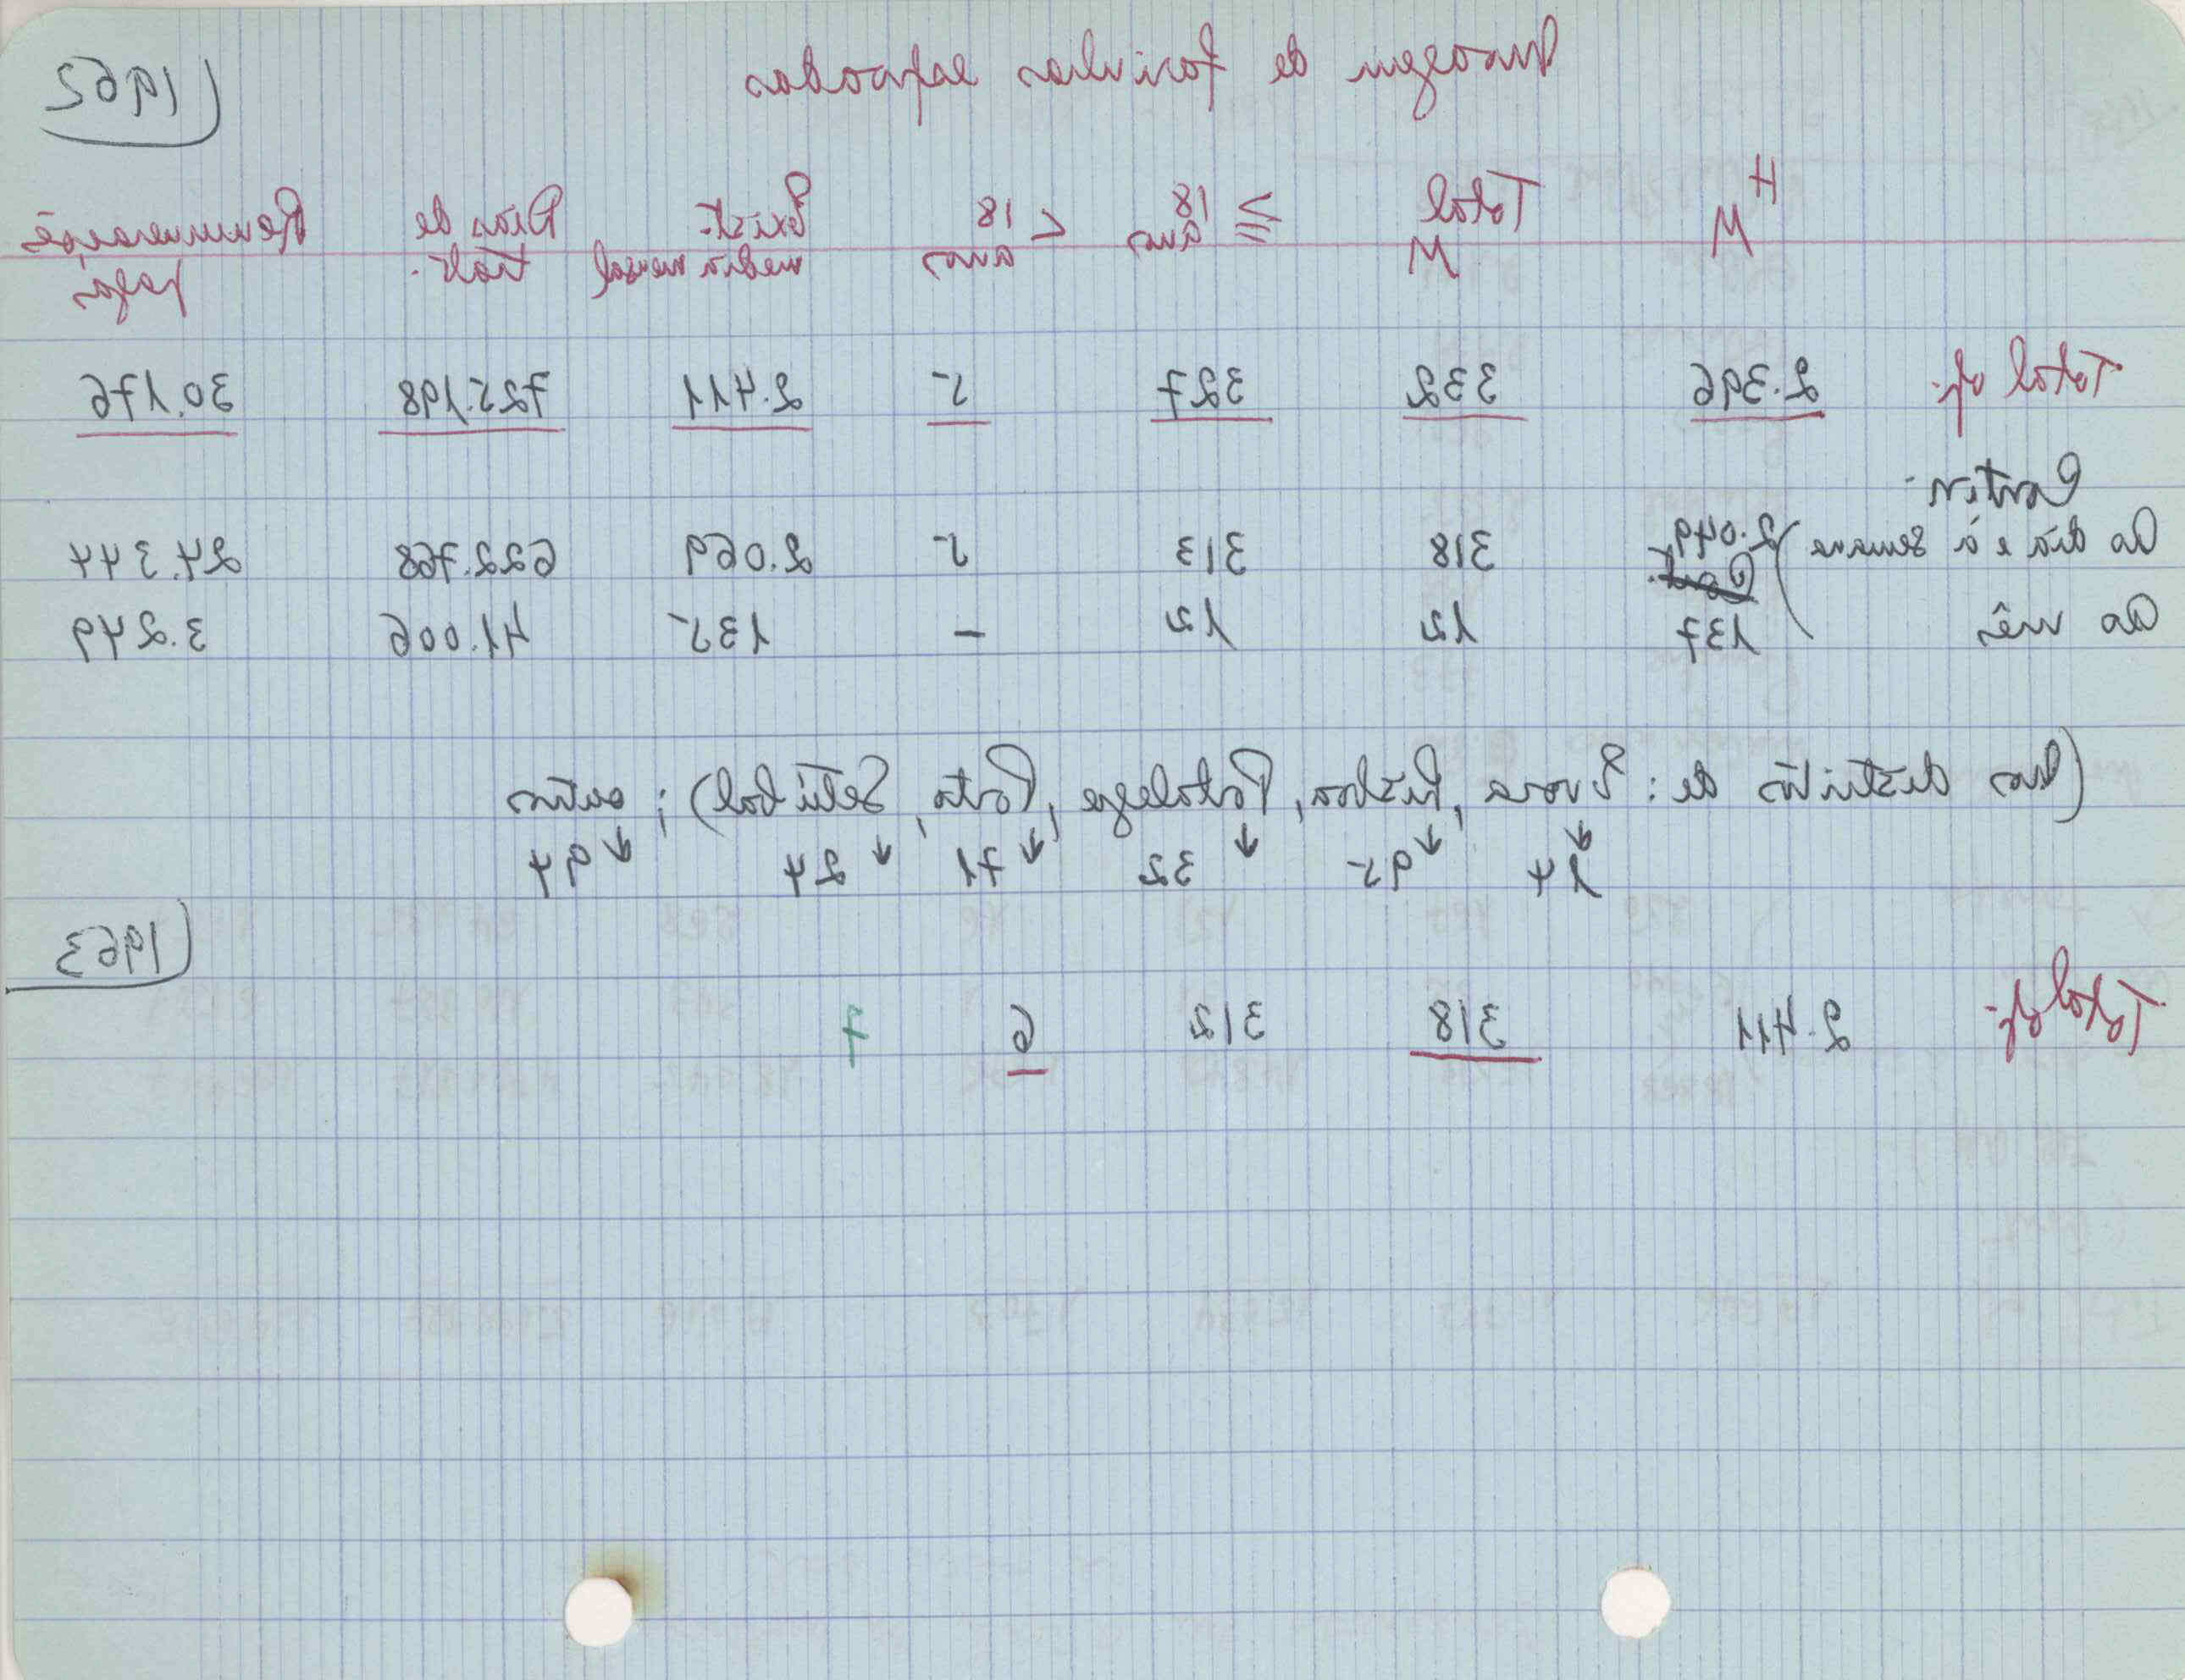 Moagem de farinhas espoadas
(1962
H M
Total M
≥ 18 anos
< 18 anos
Exist. media mensal
Dias de trab.
Remunerações pagas
Total of. 2.396 332 327 5 2.411 725.198 30.176
Contin.
Ao dia e à semana 2.049 318 313 5 2.069 622.768 24.344
Ao mês 137 12 12 - 135 41.006 3.249
(Nos distritos de: Évora, Lisboa, Portalegre, Porto, Setúbal); outros
14 95 32 71 24 94
(1963
Total of. 2.411 318 312 6 7